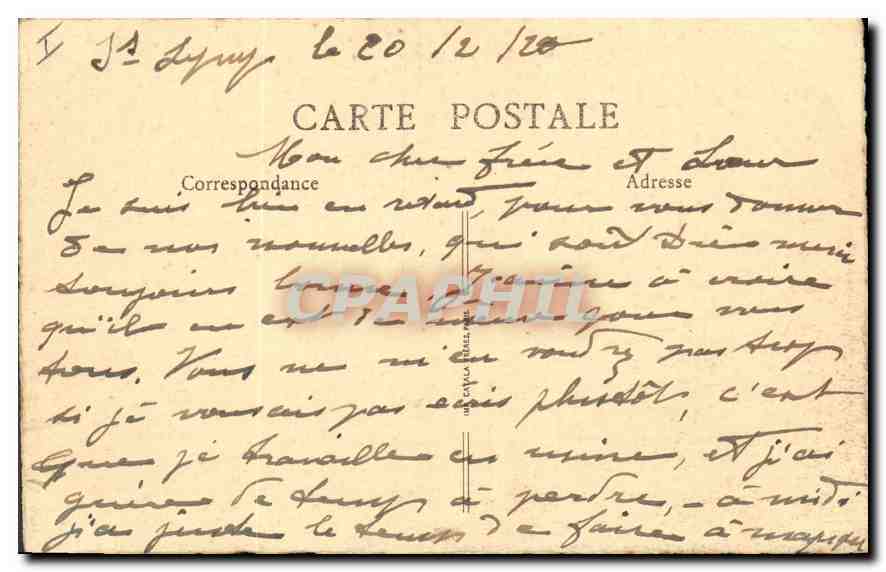 le 20/2/20
CARTE POSTALE
Mon cher frère et Sœur
Correspondance
Adresse
Je suis bien en retard, pour vous donner
de nos nouvelles, qui sont Dieu merci
toujours bonnes, J'aime à croire
qu'il en est de même pour vous
tous. Vous ne m'en voudrez pas trop
si je vous ais pas écris plustôts, c'est
que je travaille en usine, et j'ai
guère de temps à perdre, - à midi
j'ai juste le temps de faire à manger
IMP. CATALA FRÈRES, PARIS
CPAPHIL